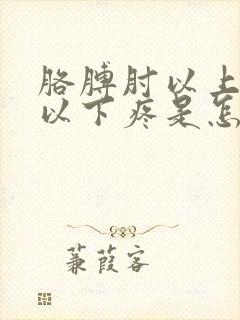 胳膊肘以上
以下疼是怎
蒹葭客